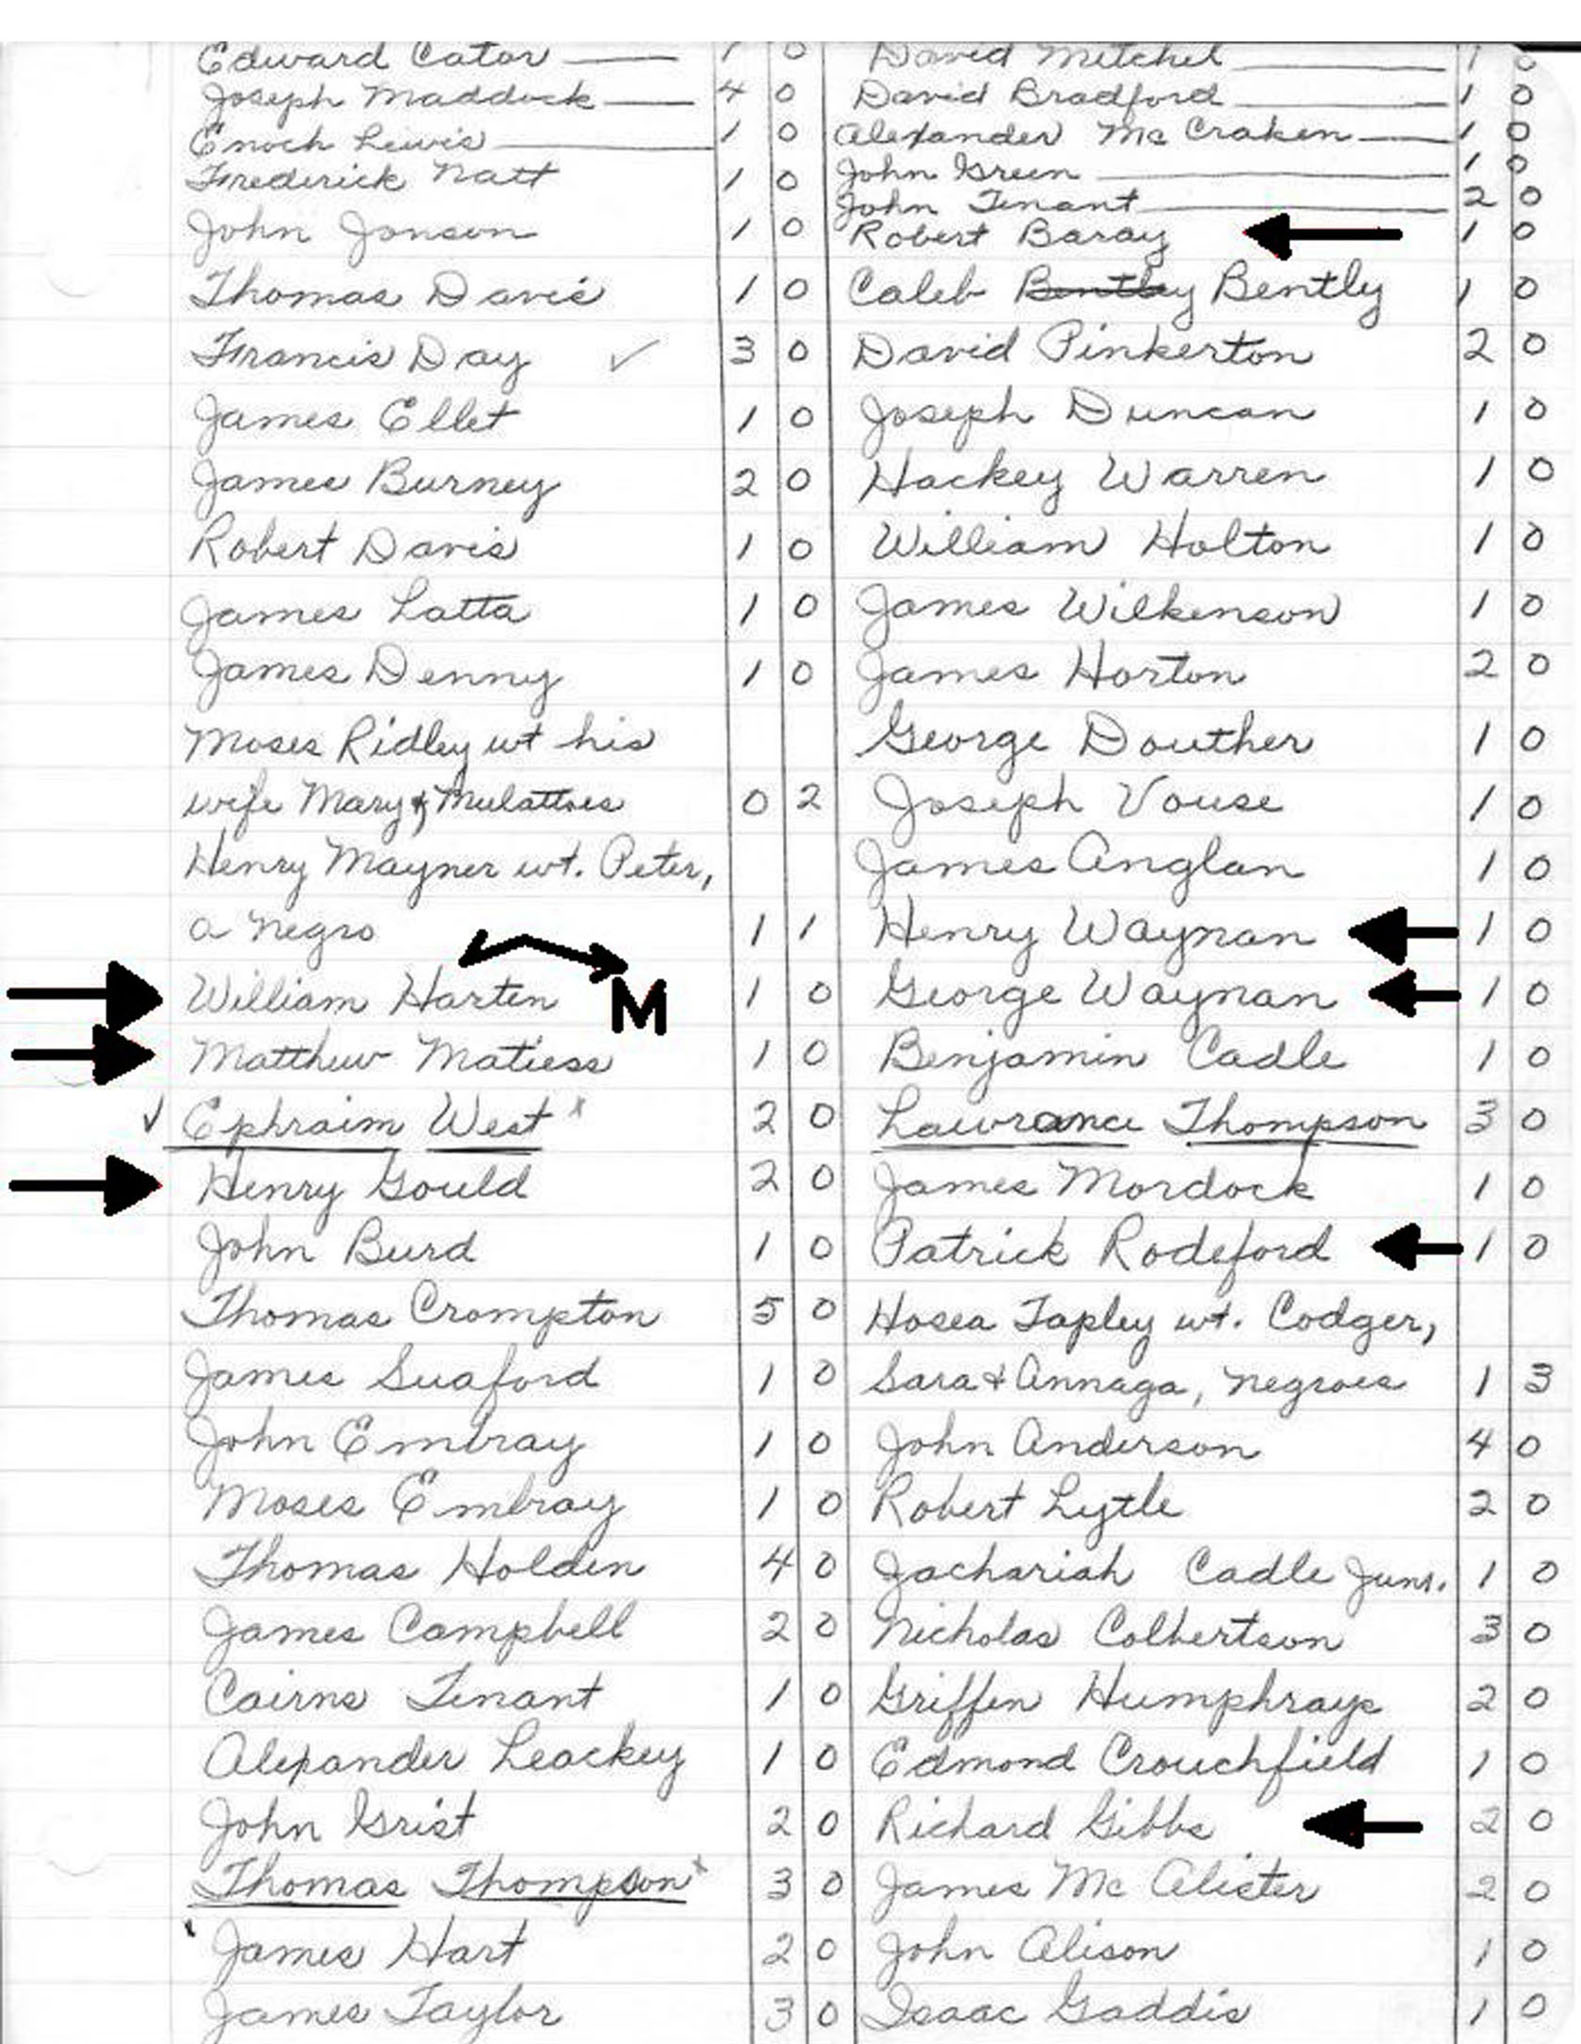 Edward Cator 1 0
Joseph Maddock 4 0
Enoch Lewis 1 0
Frederick Natt 1 0
John Jonson 1 0
Thomas Davis 1 0
Francis Day ✓ 3 0
James Ellet 1 0
James Burney 2 0
Robert Davis 1 0
James Latta 1 0
James Denny 1 0
Moses Ridley wt his
wife Mary & Mulattoes 0 2
Henry Mayner wt. Peter,
a negro 1 1
William Harten M 1 0
Matthew Matiess 1 0
✓ Ephraim West x 2 0
Henry Gould 2 0
John Burd 1 0
Thomas Crompton 5 0
James Suaford 1 0
John Embray 1 0
Moses Embray 1 0
Thomas Holden 4 0
James Campbell 2 0
Cairns Tenant 1 0
Alexander Leackey 1 0
John Grist 2 0
Thomas Thompson x 3 0
James Hart 2 0
James Taylor 3 0
David Mitchel 1 0
David Bradford 1 0
Alexander Mc Craken 1 0
John Green 1 0
John Tenant 2 0
Robert Baray 1 0
Caleb Bentley Bently 1 0
David Pinkerton 2 0
Joseph Duncan 1 0
Hackey Warren 1 0
William Holton 1 0
James Wilkenson 1 0
James Horton 2 0
George Douther 1 0
Joseph Vouse 1 0
James Anglan 1 0
Henry Waynan 1 0
George Waynan 1 0
Benjamin Cadle 1 0
Lawrance Thompson 3 0
James Mordock 1 0
Patrick Rodeford 1 0
Hosea Tapley wt. Codger,
Sara & Annaga, negroes 1 3
John Anderson 4 0
Robert Lytle 2 0
Zachariah Cadle Junr. 1 0
Nicholas Colbertson 3 0
Griffen Humphrays 2 0
Edmond Crouchfield 1 0
Richard Gibbs 2 0
James Mc Alister 2 0
John Alison 1 0
Isaac Gaddis 1 0